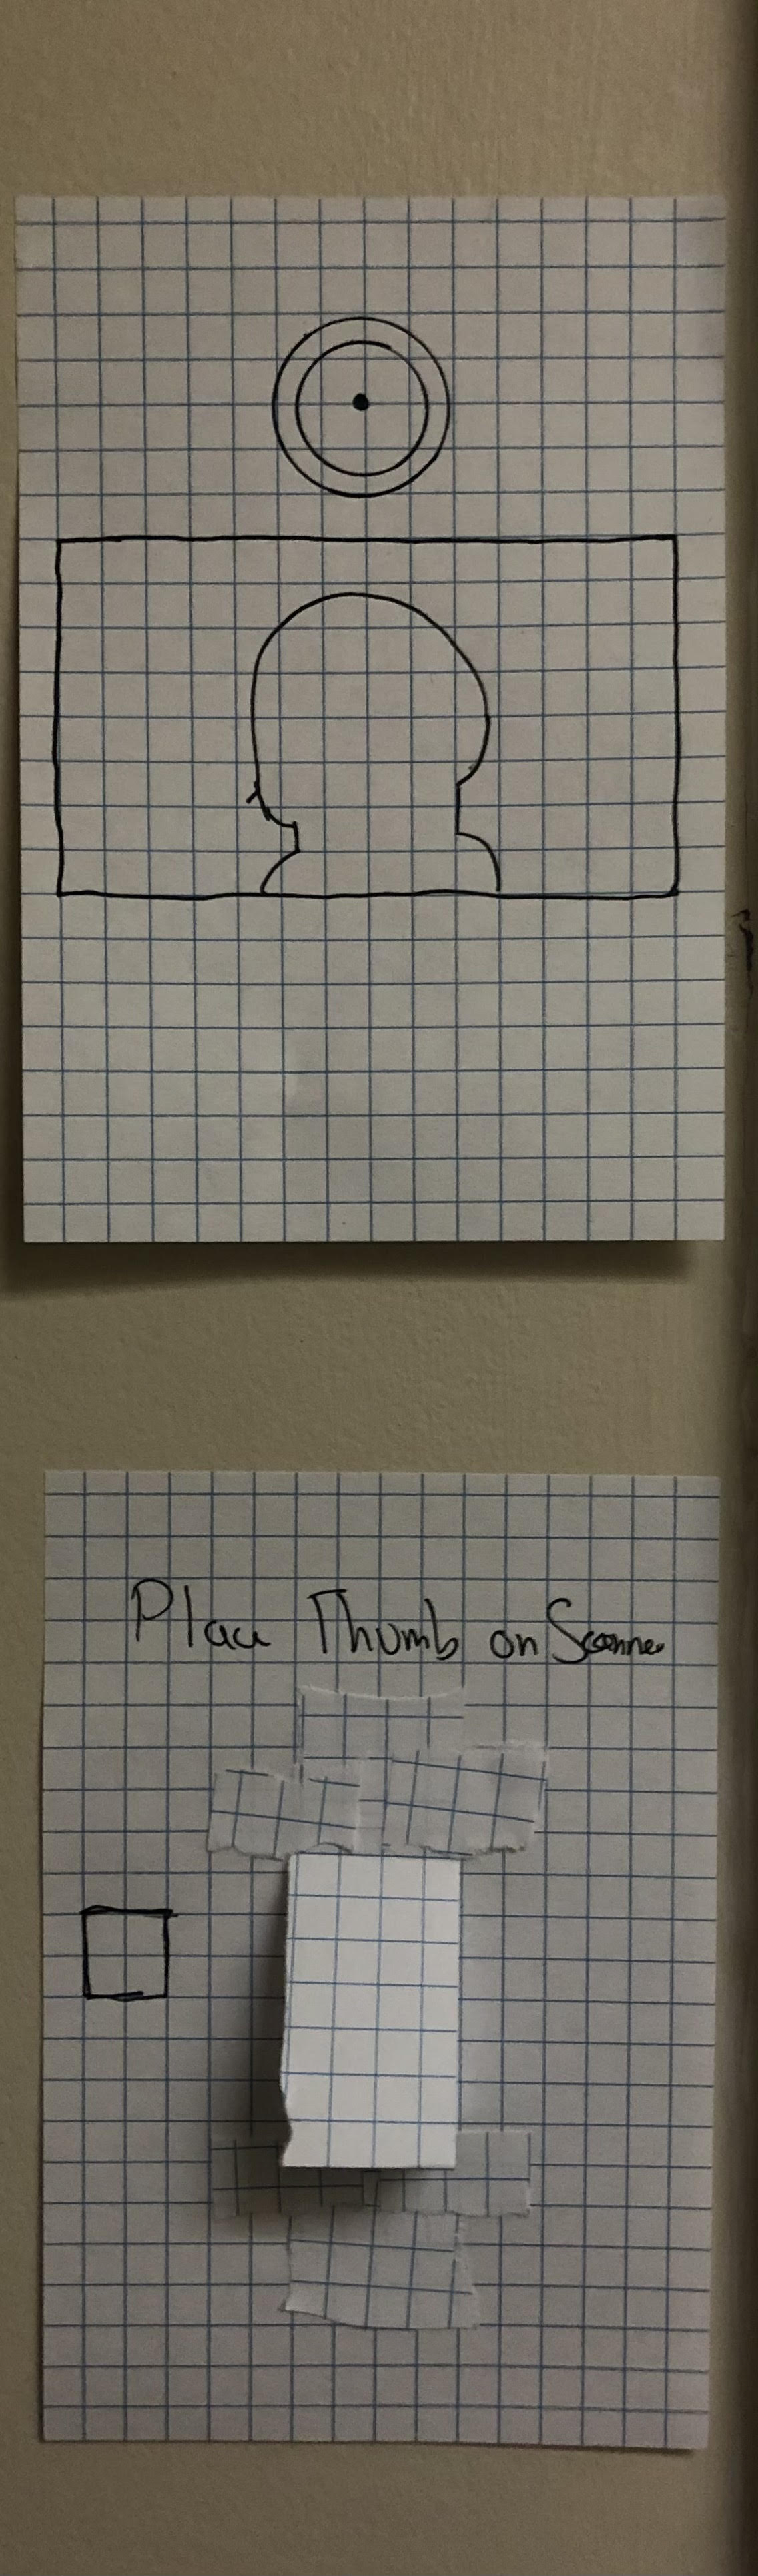 Place Thumb on Scanner